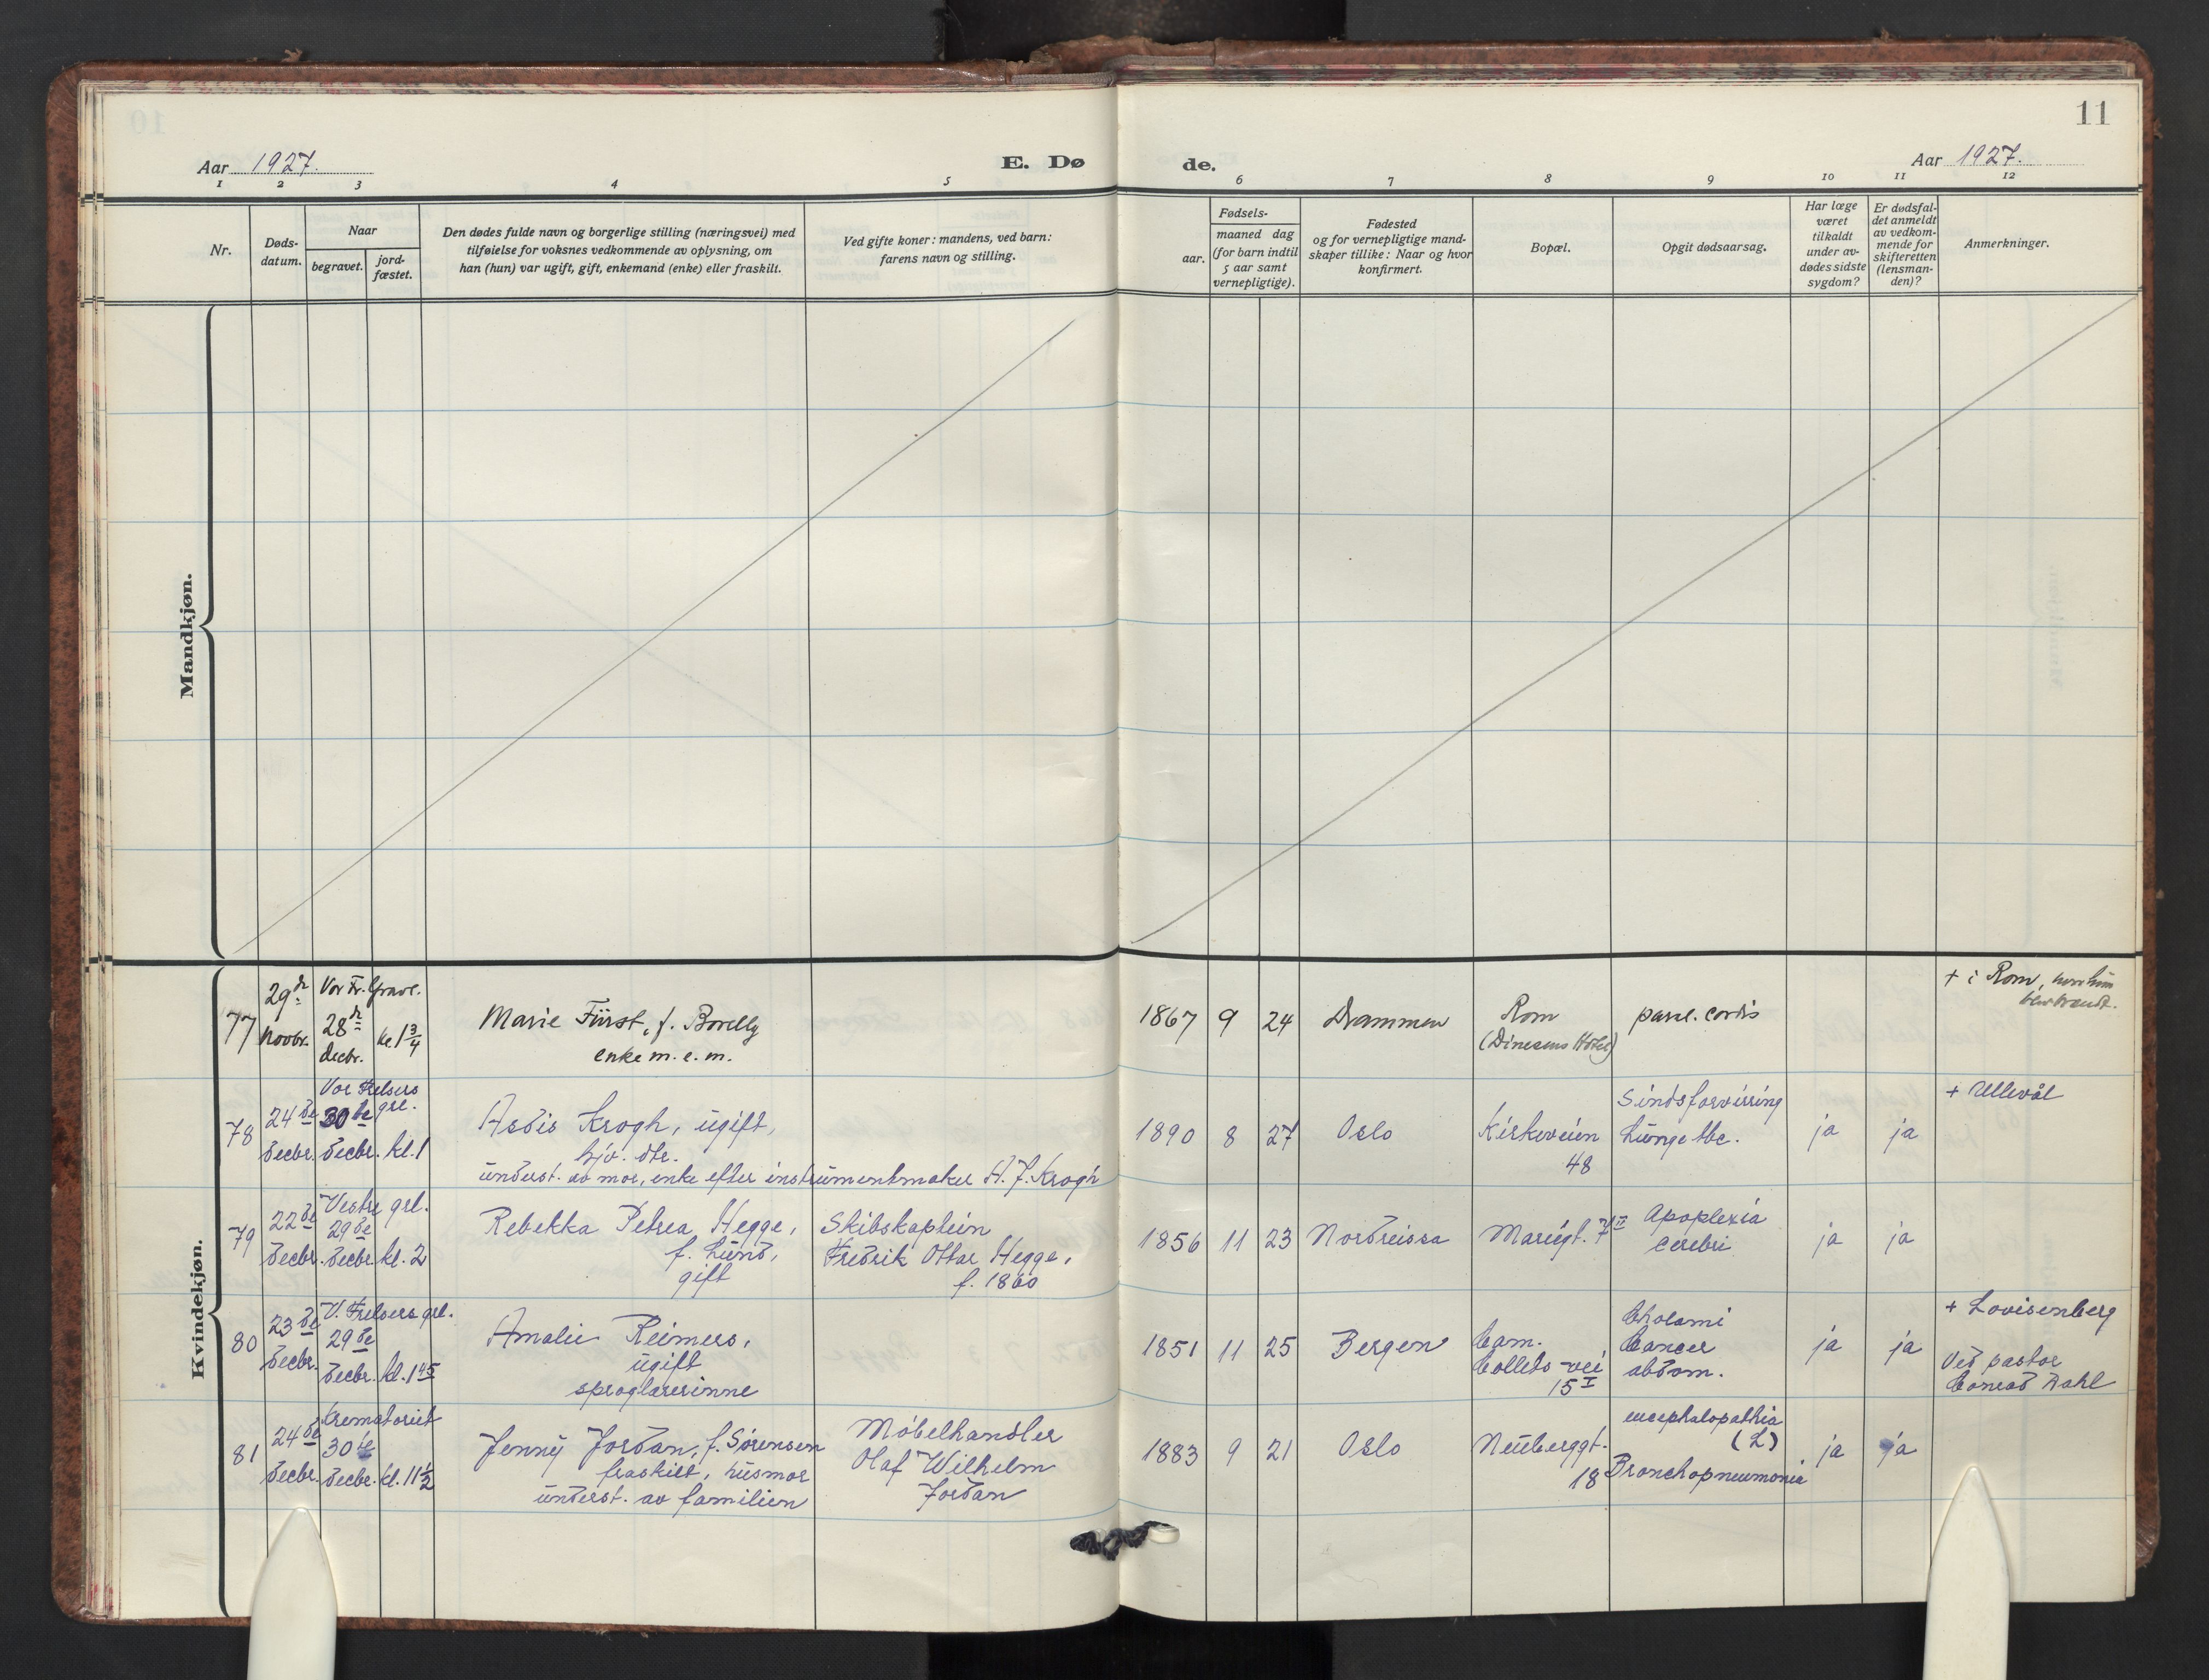 11
Aar 1927.
E. Dø
de.
Aar 1927.
1 2 3 4 5
6 7 8 9 10 11 12
Nr.
Døds-
datum.
Naar
begravet.
jord-
fæstet.
Den dødes fulde navn og borgerlige stilling (næringsvei) med
tilføielse for voksnes vedkommende av oplysning, om
han (hun) var ugift, gift, enkemand (enke) eller fraskilt.
Ved gifte koner: mandens, ved barn:
farens navn og stilling.
Fødsels-
aar.
maaned dag
(for barn indtil
5 aar samt
vernepligtige).
Fødested
og for vernepligtige mand-
skaper tillike: Naar og hvor
konfirmert.
Bopæl.
Opgit dødsaarsag.
Har læge
været
tilkaldt
under av-
dødes sidste
sygdom?
Er dødsfal-
det anmeldt
av vedkom-
mende for
skifteretten
(lensman-
den)?
Anmerkninger.
Mandkjøn.
Kvindekjøn.
77
29de
Novbr.
Vor Fr. Grave.
28de
Decbr.
kl. 1 3/4
Marie Fürst, f. Borelly
enke m. e. m.
1867 9 24
Drammen
Rom
(Dinesens Hotel)
paral. cordis
+ i Rom, hvor hun
blev brændt.
78
24de
Decbr.
Vor Frelsers
grl.
30te
Decbr. kl. 1
Asdis Krogh, ugift,
hjv. dtr.
underst. av mor, enke efter instrumentmaker H. J. Krogh
1890 8 27
Oslo
Kirkeveien
48
Sindsforvirring
Lunge tbc.
ja
ja
+ Ullevål
79
22de
Decbr.
Vestre grl.
29de
Decbr. kl. 2
Rebekka Petrea Hegge,
f. Lund,
gift
Skibskaptein
Fredrik Ottar Hegge,
f. 1860
1856 11 23
Nordreissa
Mariegt. 7 II
Apoplexia
cerebri
ja
ja
80
23de
Decbr.
V. Frelsers grl.
29de
Decbr. kl. 1 45
Amalie Reimers,
ugift
sproglærerinne
1851 11 25
Bergen
Cam.
Colletts vei
15 I
Cholami
Cancer
abdom.
ja
ja
+ Lovisenberg
Ved pastor
Conrad Dahl
81
24de
Decbr.
Krematoriet
30te
Decbr. kl. 11 1/2
Jenny Jordan, f. Sørensen
fraskilt, husmor
underst. av familien
Møbelhandler
Olaf Wilhelm
Jordan
1883 9 21
Oslo
Neuberggt.
18
encephalopathia
(L)
Bronchopneumonia
ja
ja